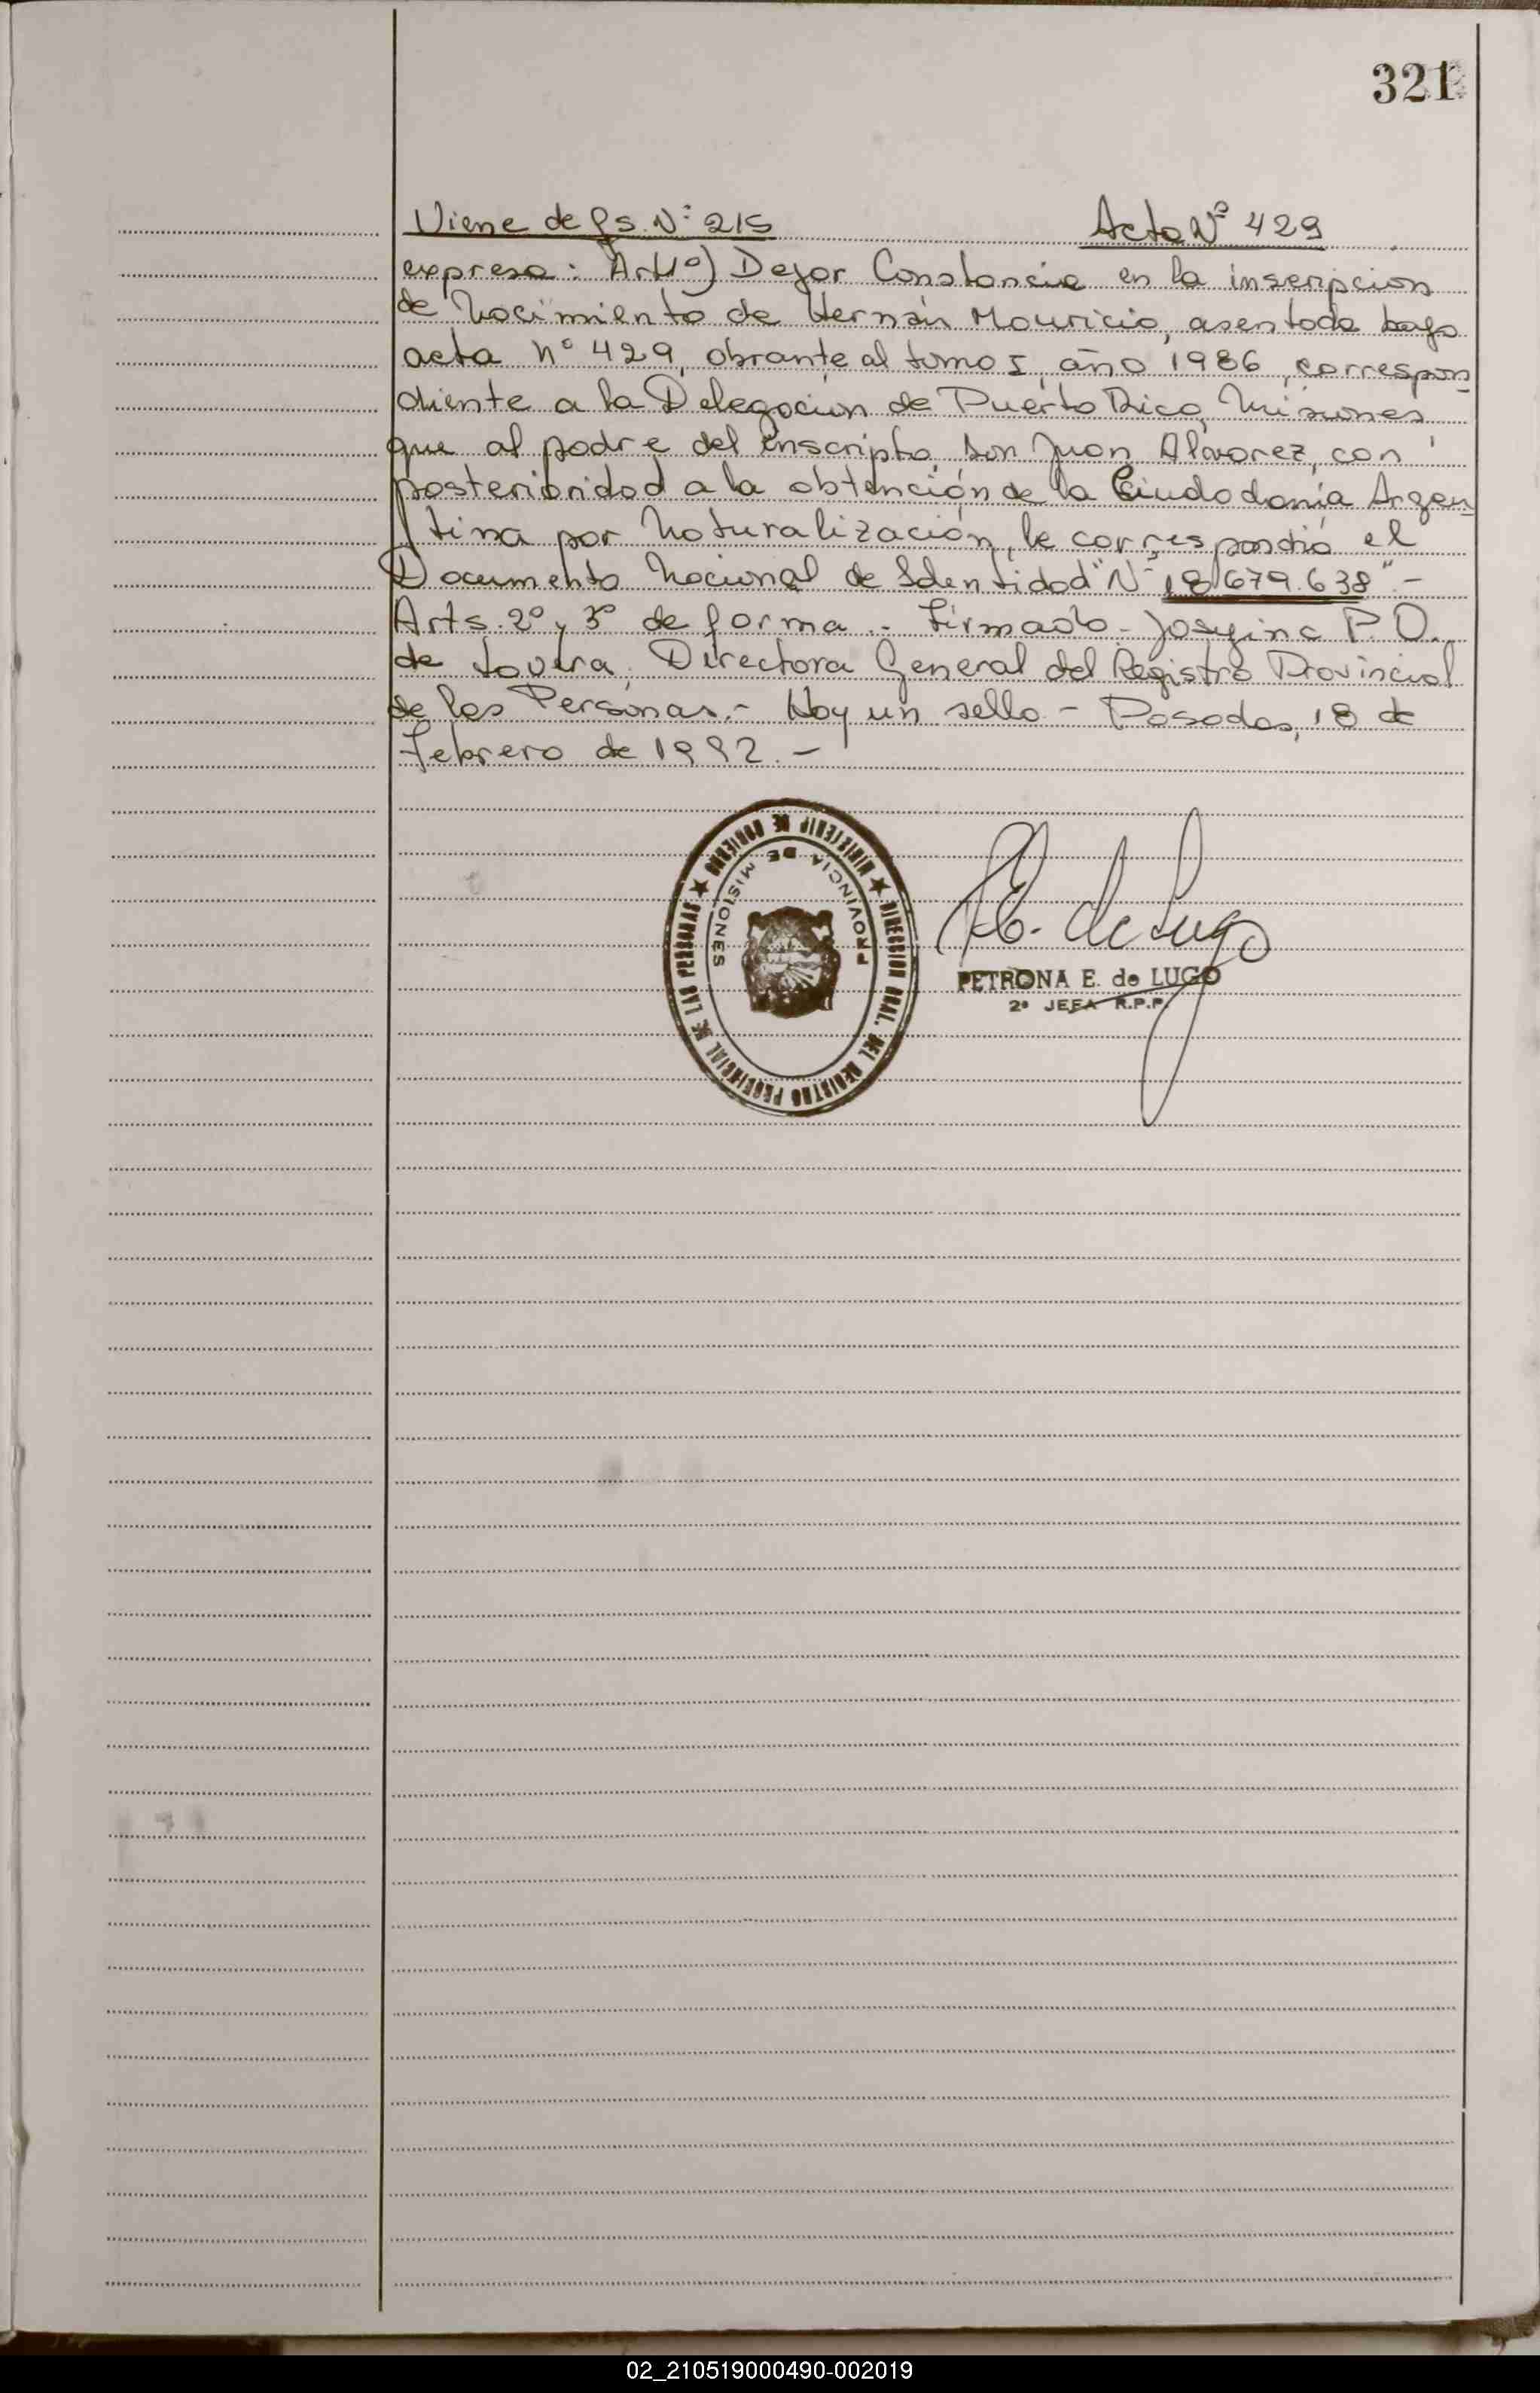 321
Viene de fs. Nº 215 Acta Nº 429
expresa: Art 1º) Dejar Constancia en la inscripción
de Nacimiento de Hernán Mauricio, asentada bajo
acta nº 429, obrante al tomo I, año 1986, correspon
diente a la Delegación de Puerto Rico, Misiones,
que al padre del inscripto, don Juan Alvarez, con
posterioridad a la obtención de la Ciudadanía Argen
tina por Naturalización, le correspondió el
Documento Nacional de Identidad "Nº 18.679.638" -
Arts. 2º y 3º de forma.- Firmado - Josefina P.O.
de Lovera, Directora General del Registro Provincial
de las Personas.- Hay un sello - Posadas, 18 de
Febrero de 1992.-
★ MINISTERIO DE GOBIERNO ★ DIRECCION GRAL. DEL REGISTRO PROVINCIAL DE LAS PERSONAS
PROVINCIA DE MISIONES
E. de Lugo
PETRONA E. de LUGO
2ª JEFA R.P.P.
02_210519000490-002019